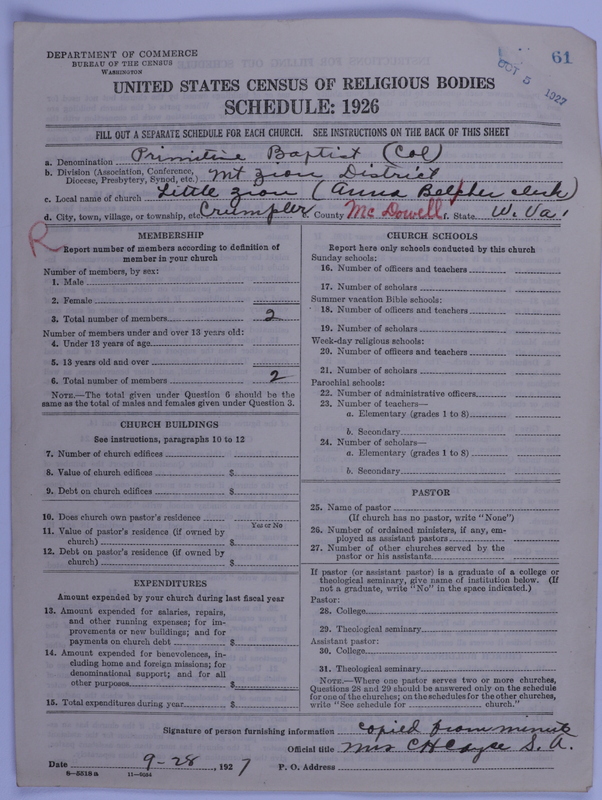 DEPARTMENT OF COMMERCE
BUREAU OF THE CENSUS
WASHINGTON
OCT 5 1927
61
UNITED STATES CENSUS OF RELIGIOUS BODIES
SCHEDULE: 1926
FILL OUT A SEPARATE SCHEDULE FOR EACH CHURCH. SEE INSTRUCTIONS ON THE BACK OF THIS SHEET
a. Denomination Primitive Baptist (Col)
b. Division (Association, Conference, Diocese, Presbytery, Synod, etc.) Mt Zion District
c. Local name of church Little Zion (Anna Belcher clerk)
d. City, town, village, or township, etc. Crumpler e. County McDowell f. State W. Va.
R
MEMBERSHIP
Report number of members according to definition of
member in your church
Number of members, by sex:
1. Male
2. Female
3. Total number of members 2
Number of members under and over 13 years old:
4. Under 13 years of age
5. 13 years old and over
6. Total number of members 2
NOTE.—The total given under Question 6 should be the
same as the total of males and females given under Question 3.
CHURCH BUILDINGS
See instructions, paragraphs 10 to 12
7. Number of church edifices
8. Value of church edifices $
9. Debt on church edifices $
10. Does church own pastor's residence
Yes or No
11. Value of pastor's residence (if owned by
church) $
12. Debt on pastor's residence (if owned by
church) $
EXPENDITURES
Amount expended by your church during last fiscal year
13. Amount expended for salaries, repairs,
and other running expenses; for im-
provements or new buildings; and for
payments on church debt $
14. Amount expended for benevolences, in-
cluding home and foreign missions; for
denominational support; and for all
other purposes $
15. Total expenditures during year $
CHURCH SCHOOLS
Report here only schools conducted by this church
Sunday schools:
16. Number of officers and teachers
17. Number of scholars
Summer vacation Bible schools:
18. Number of officers and teachers
19. Number of scholars
Week-day religious schools:
20. Number of officers and teachers
21. Number of scholars
Parochial schools:
22. Number of administrative officers
23. Number of teachers—
a. Elementary (grades 1 to 8)
b. Secondary
24. Number of scholars—
a. Elementary (grades 1 to 8)
b. Secondary
PASTOR
25. Name of pastor
(If church has no pastor, write "None")
26. Number of ordained ministers, if any, em-
ployed as assistant pastors
27. Number of other churches served by the
pastor or his assistants
If pastor (or assistant pastor) is a graduate of a college or
theological seminary, give name of institution below. (If
not a graduate, write "No" in the space indicated.)
Pastor:
28. College
29. Theological seminary
Assistant pastor:
30. College
31. Theological seminary
NOTE.—Where one pastor serves two or more churches,
Questions 28 and 29 should be answered only on the schedule
for one of the churches; on the schedules for the other churches,
write "See schedule for church."
Signature of person furnishing information copied from minute
Official title Mrs C H Cayce S. A.
Date 9-28, 1927 P. O. Address
8-5518a 11-9564